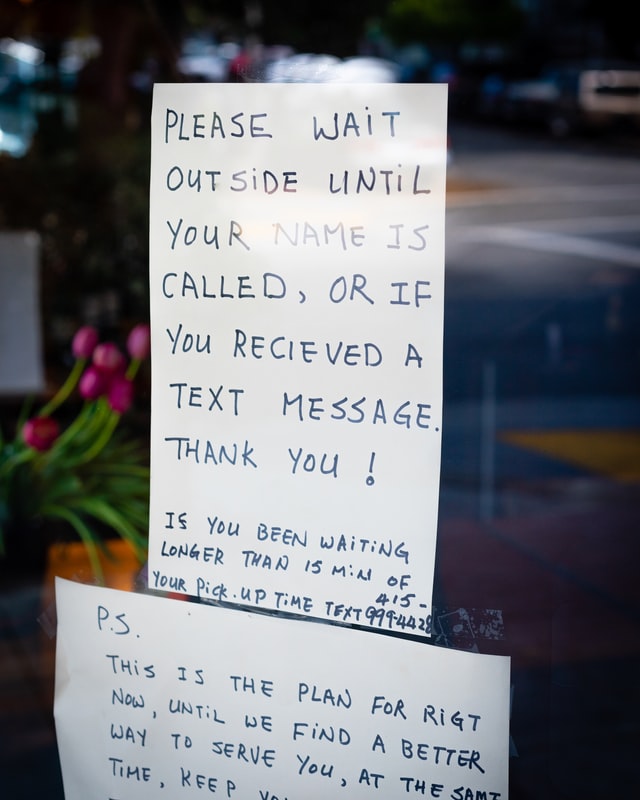 PLEASE WAIT
OUTSIDE UNTIL
YOUR NAME IS
CALLED, OR IF
YOU RECIEVED A
TEXT MESSAGE.
THANK YOU!
IS YOU BEEN WAITING
LONGER THAN 15 MIN OF
YOUR PICK.UP TIME TEXT 415-
P.S.
THIS IS THE PLAN FOR RIGT
NOW, UNTIL WE FIND A BETTER
WAY TO SERVE YOU, AT THE SAME
TIME, KEEP